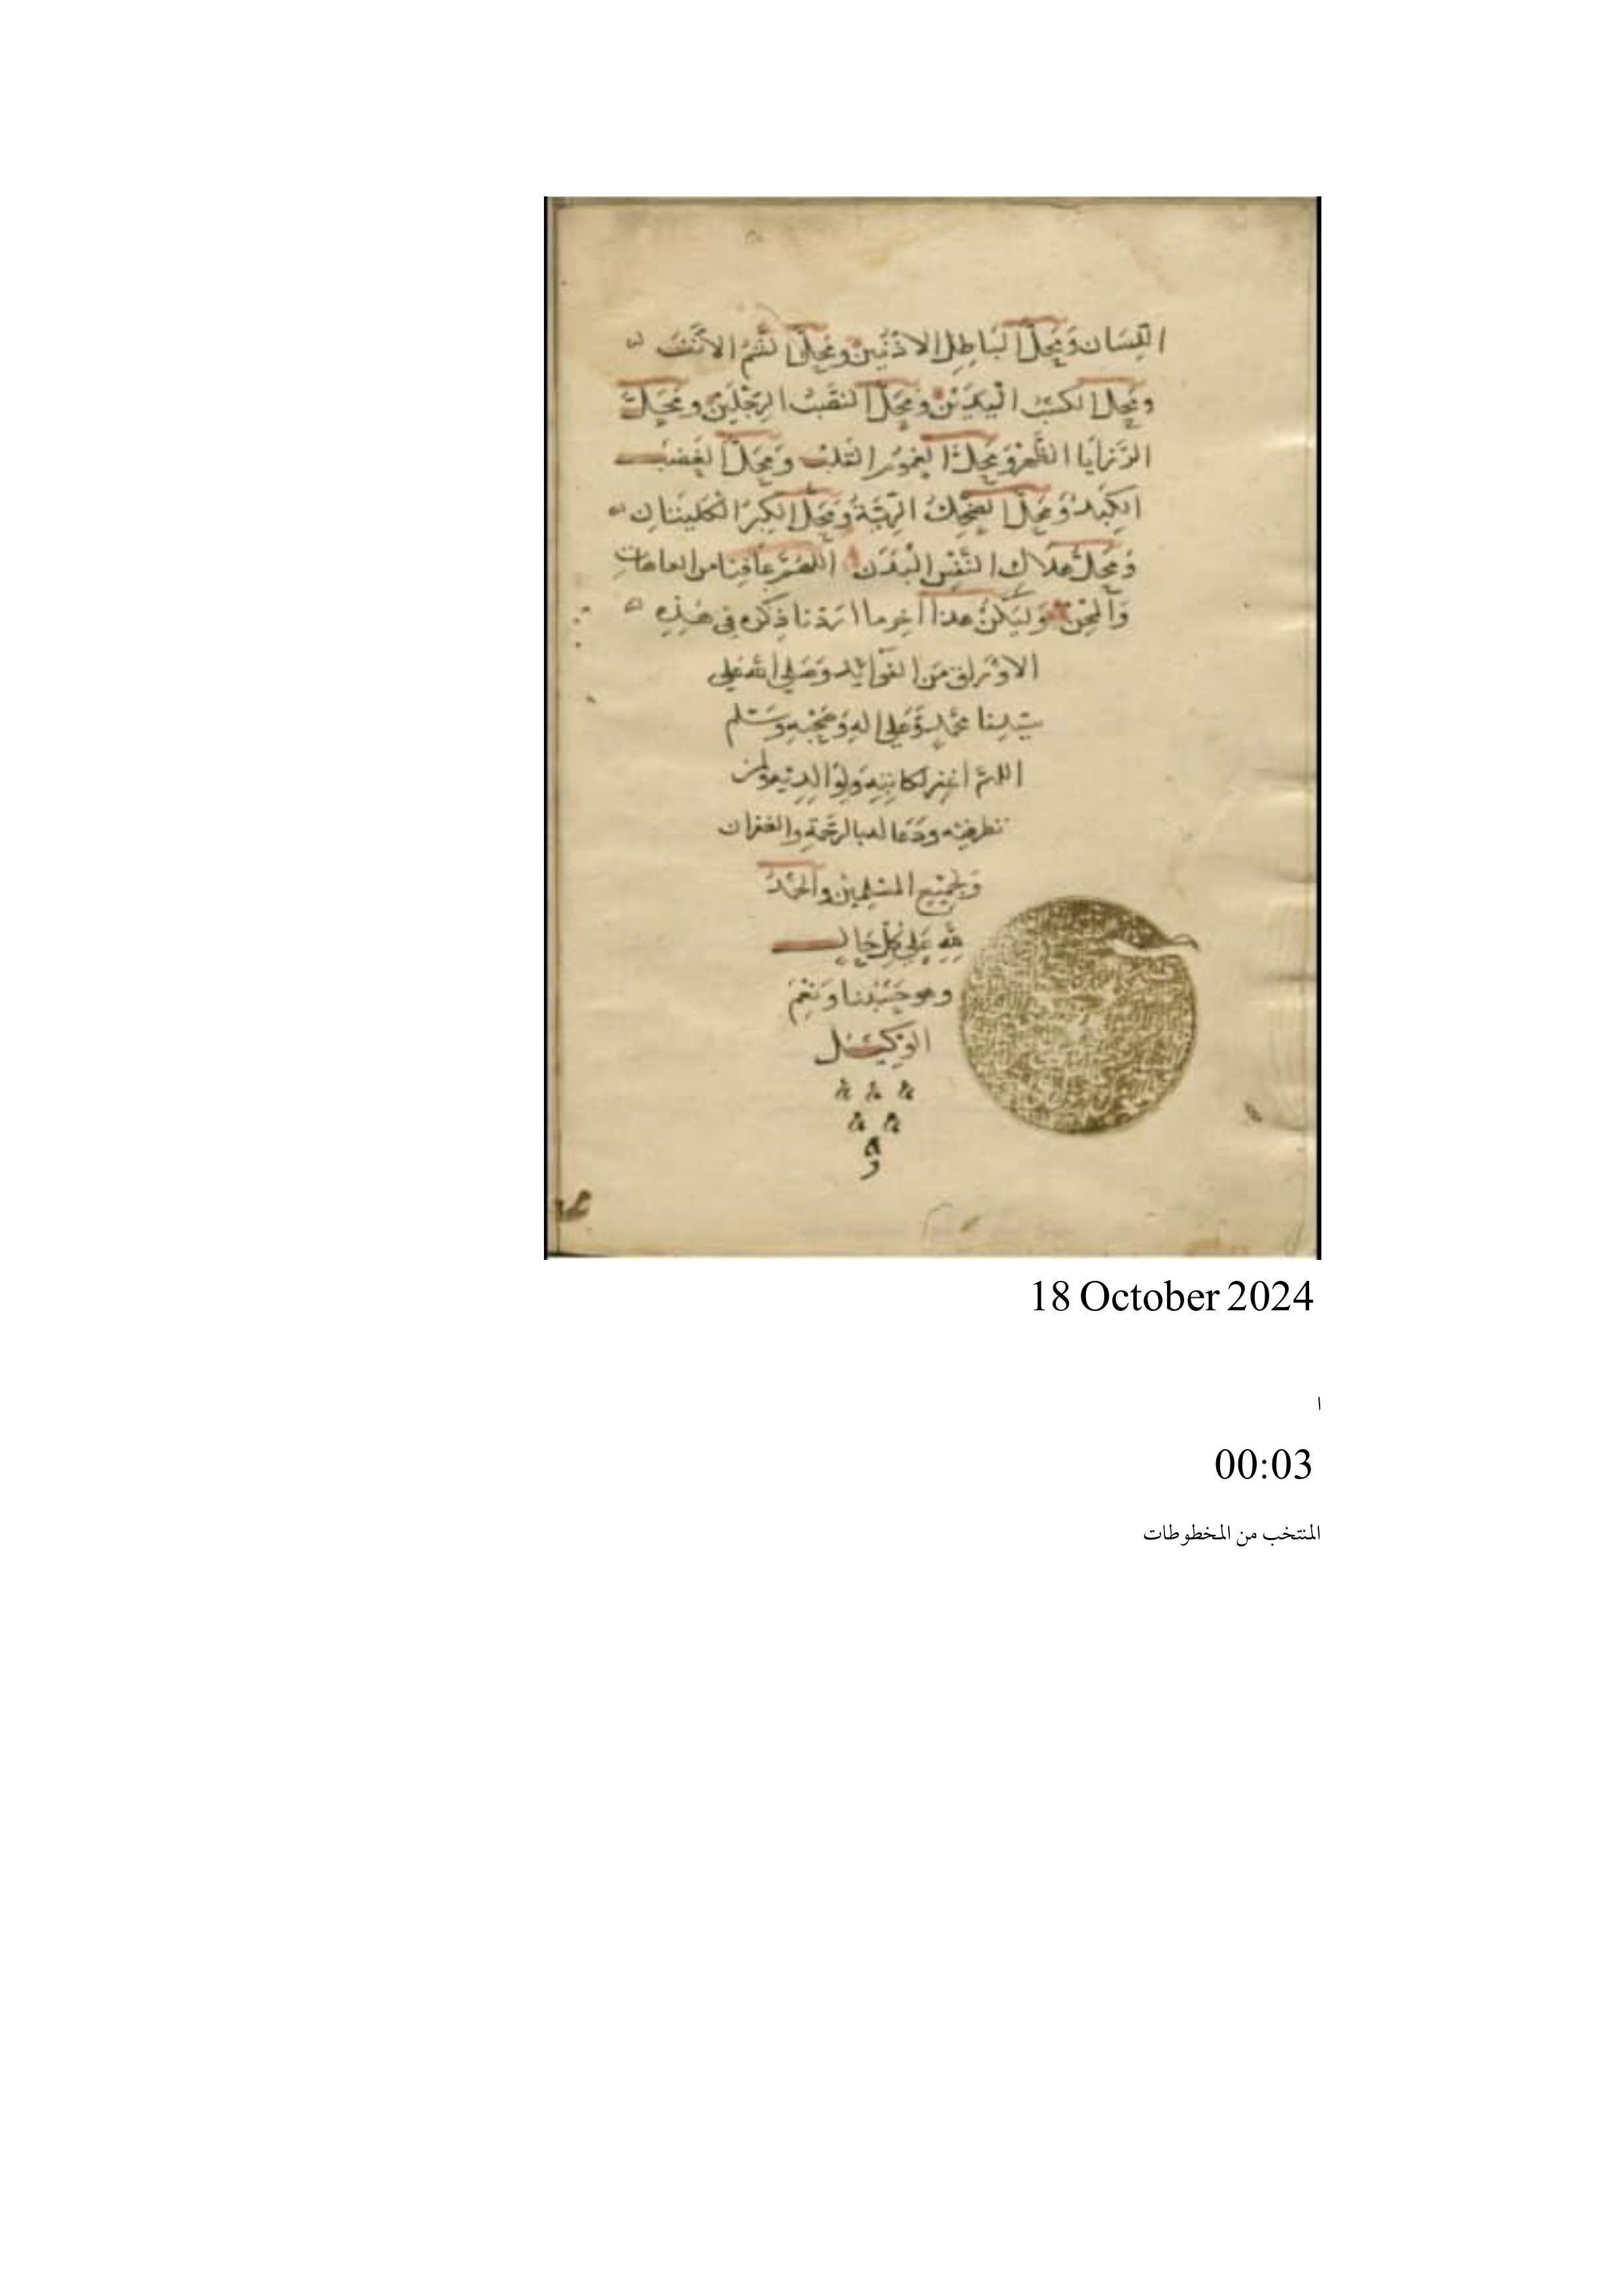 اللِّسَان وَمَحَلّ البَاطِلِ الاذْنَيْن ومَحَلّ الشَّمّ الاَنْف
ومَحَلّ الكسْبْ اليَدَيْن ومَحَلّ النصَبْ الرِجْلَيْن ومَحَلّ
الرَّزايَا الظَّهرْ ومَحَلّ الغمُومِ القَلبْ وَمَحَلّ الغَضَبْ
الكَبدْ وَمَحَلّ الضحِكْ الرِّيَّة وَمَحَلّ الكِبرْ الكليتان
وَمَحَلّ هلاك النَّفسِ البَدَن اللهُمَّ عَافِنا من العاهاتِ
وَالمِحَن وَليَكنْ هذا آخِر ما اردْنا ذِكره فِى هذِهِ
الاوْراق مِنَ الفَوائِد وَصَلى الله عَلى
سَيِّدِنا محَمَّد وَعَلى الِهِ وَصَحْبِهِ وَسَلم
اللهمَّ اغفِر لكاتِبِهِ وَلِوَالِدِيْه ولمن
نظر فيه ودَعَا له بالرحمَةِ والغفران
وَلِجَمِيْعِ المسْلِمِيْن والحَمْدُ
لِلَّهِ عَلى كلِّ حَال
وهو حَسْبُنا وَنِعْمَ
الوَكِيْل
18 October 2024
ا
00:03
المنتخب من المخطوطات